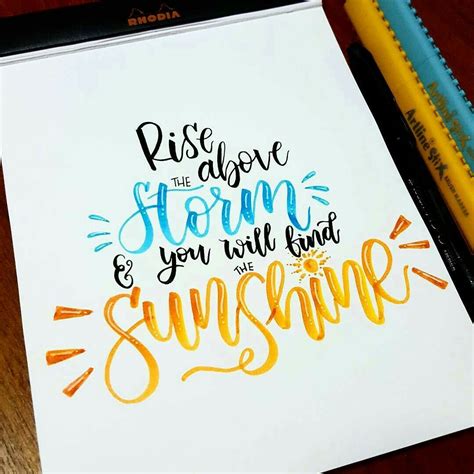 RHODIA
Rise
above
THE
Storm
& you will find
THE
Sunshine
Artline Stix
Artline Stix